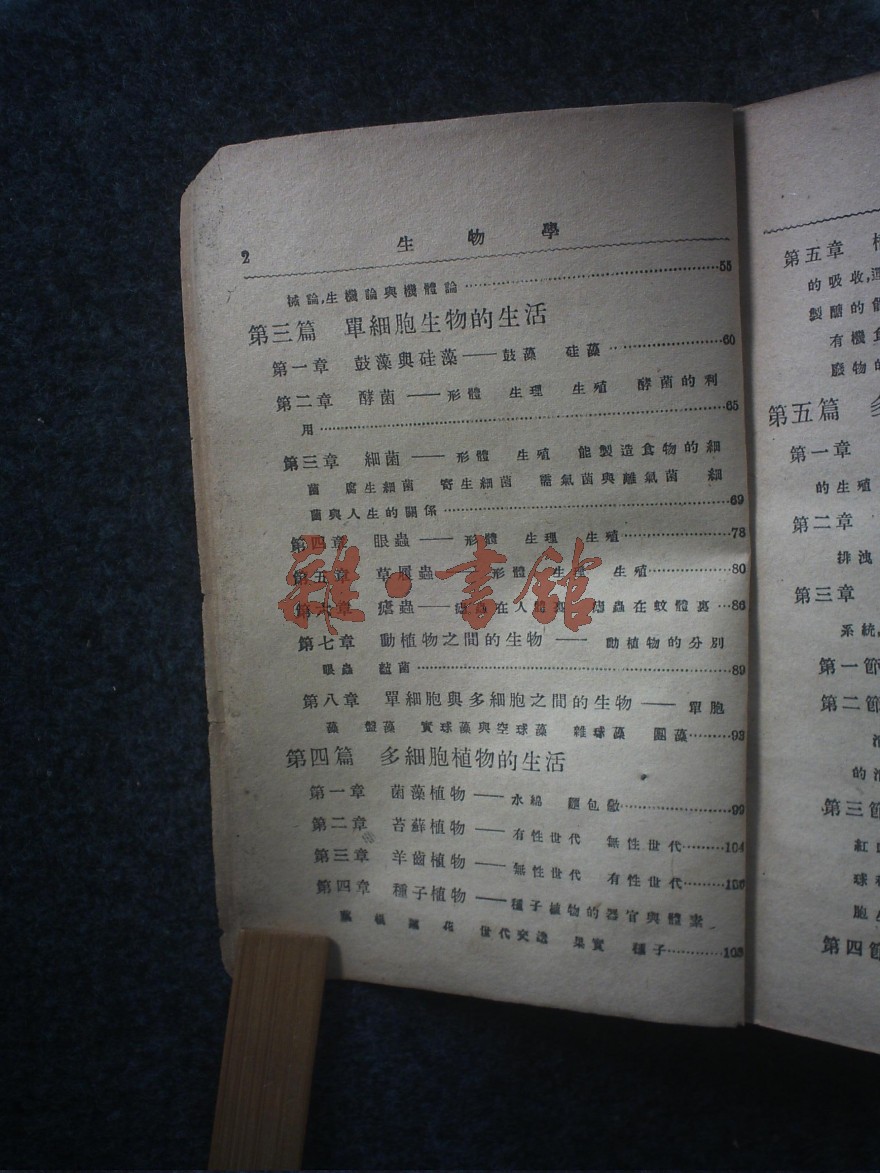 2 生物學
械論,生機論與機體論 55
第三篇 單細胞生物的生活
第一章 鼓藻與硅藻——鼓藻 硅藻 60
第二章 酵菌——形體 生理 生殖 酵菌的利
用 65
第三章 細菌——形體 生殖 能製造食物的細
菌 腐生細菌 寄生細菌 需氣菌與離氣菌 細
菌與人生的關係 69
第四章 眼蟲——形體 生理 生殖 78
第五章 草履蟲——形體 生理 生殖 80
第六章 瘧蟲——瘧蟲在人體裏 瘧蟲在蚊體裏 86
第七章 動植物之間的生物——動植物的分別
眼蟲 黏菌 89
第八章 單細胞與多細胞之間的生物——單胞
藻 盤藻 實球藻與空球藻 雜球藻 團藻 93
第四篇 多細胞植物的生活
第一章 菌藻植物——水綿 麵包黴 99
第二章 苔蘚植物——有性世代 無性世代 104
第三章 羊齒植物——無性世代 有性世代
第四章 種子植物——種子植物的器官與體素
花 世代交迭 果實 種子
雜·書館
第五章
的吸收,
製醣的
有機食
廢物的
第五篇
第一章
的生殖
第二章
排洩
第三章
系統,
第一節
第二節
的消
第三節
紅
球
胞
第四節